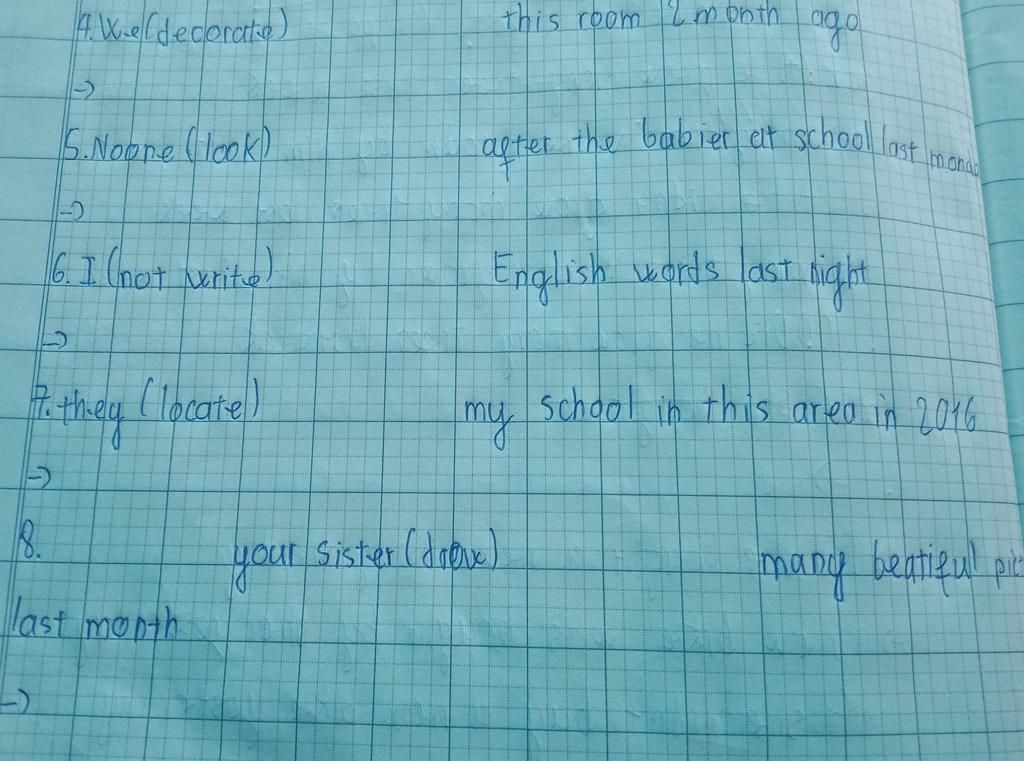 4. We (decorate) this room 2 month ago
->
5. Noone (look) after the babier at school last monda
->
6. I (not write) English words last night
->
7. they (locate) my school in this area in 2016
->
8. your sister (draw) many beatiful pic
last month
->